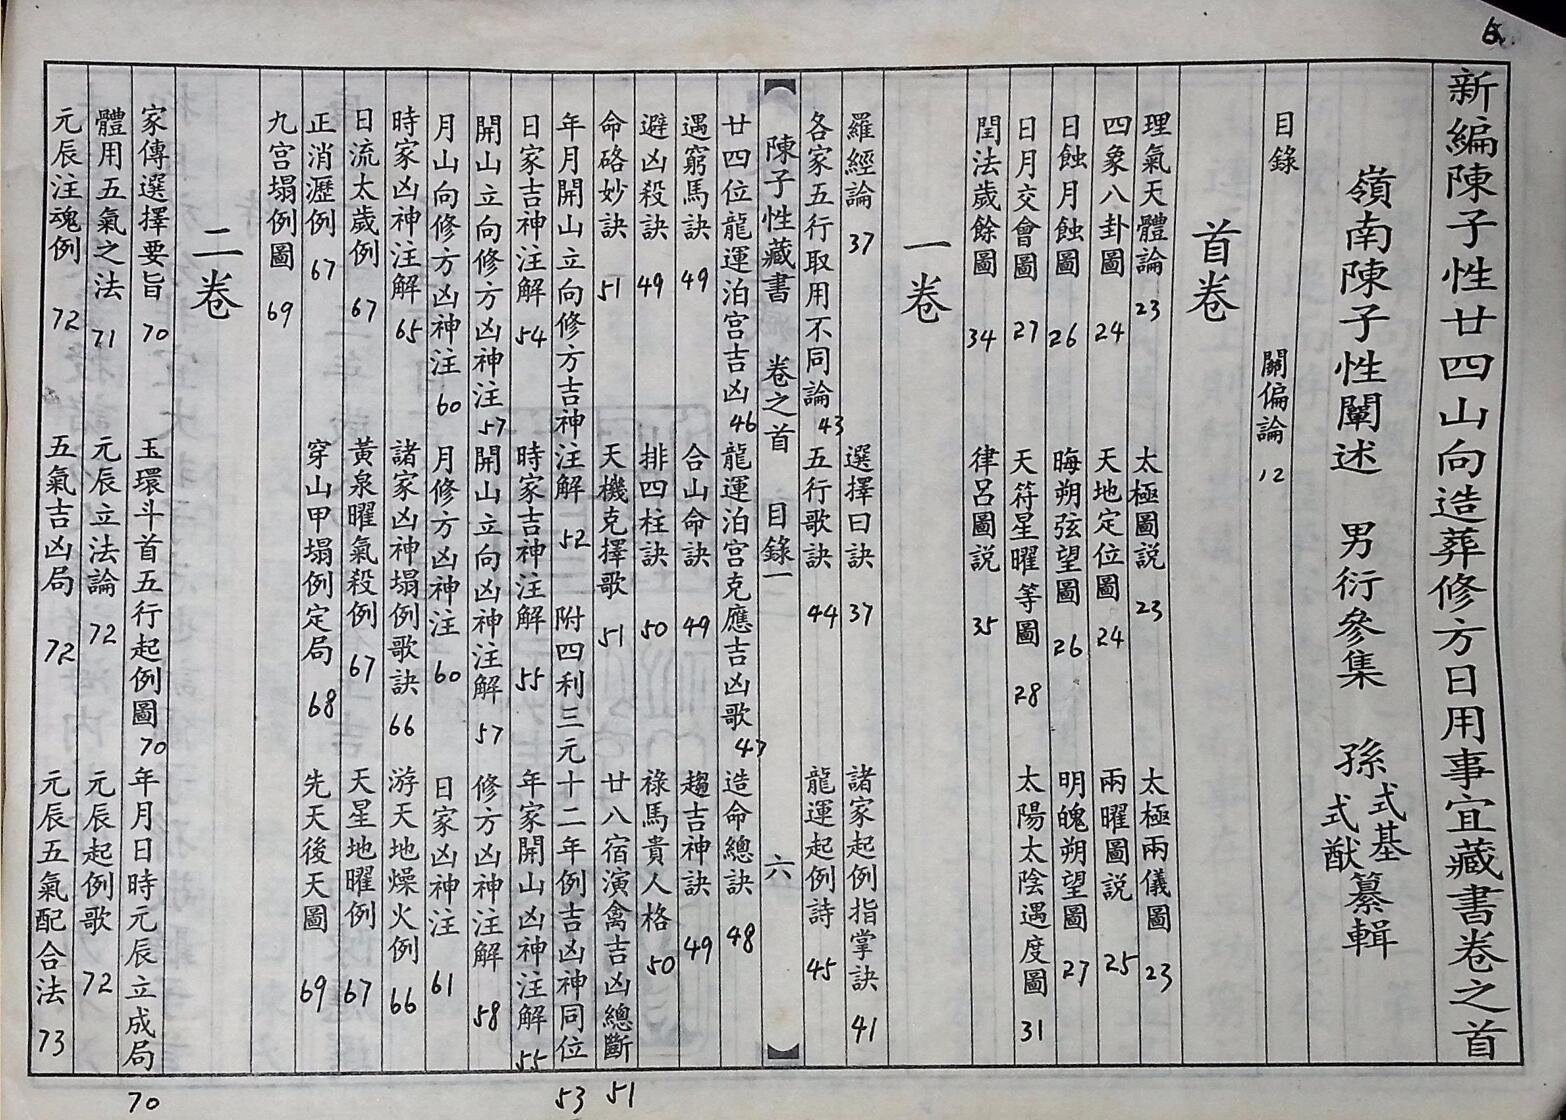 6
新編陳子性廿四山向造葬修方日用事宜藏書卷之首
嶺南陳子性闡述 男衍參集 孫式基式猷纂輯
目錄 闢偏論 12
首卷
理氣天體論 23 太極圖説 23 太極兩儀圖 23
四象八卦圖 24 天地定位圖 24 兩曜圖説 25
日蝕月蝕圖 26 晦朔弦望圖 26 明魄朔望圖 27
日月交會圖 27 天符星曜等圖 28 太陽太陰遇度圖 31
閏法歲餘圖 34 律呂圖説 35
一卷
羅經論 37 選擇曰訣 37 諸家起例指掌訣 41
各家五行取用不同論 43 五行歌訣 44 龍運起例詩 45
陳子性藏書 卷之首 目錄一 六
廿四位龍運泊宮吉凶 46 龍運泊宮克應吉凶歌 47 造命總訣 48
遇窮馬訣 49 合山命訣 49 趨吉神訣 49
避凶殺訣 49 排四柱訣 50 祿馬貴人格 50
命硌妙訣 51 天機克擇歌 51 廿八宿演禽吉凶總斷 51
年月開山立向修方吉神注解 52 附四利三元十二年例吉凶神同位 53
日家吉神注解 54 時家吉神注解 55 年家開山凶神注解 55
開山立向修方凶神注 57 開山立向凶神注解 57 修方凶神注解 58
月山向修方凶神注 60 月修方凶神注 60 日家凶神注 61
時家凶神注解 65 諸家凶神塌例歌訣 66 游天地燥火例 66
日流太歲例 67 黃泉曜氣殺例 67 天星地曜例 67
正消瀝例 67 穿山甲塌例定局 68 先天後天圖 69
九宮塌例圖 69
二卷
家傳選擇要旨 70 玉環斗首五行起例圖 70 年月日時元辰立成局 70
體用五氣之法 71 元辰立法論 72 元辰起例歌 72
元辰注魂例 72 五氣吉凶局 72 元辰五氣配合法 73